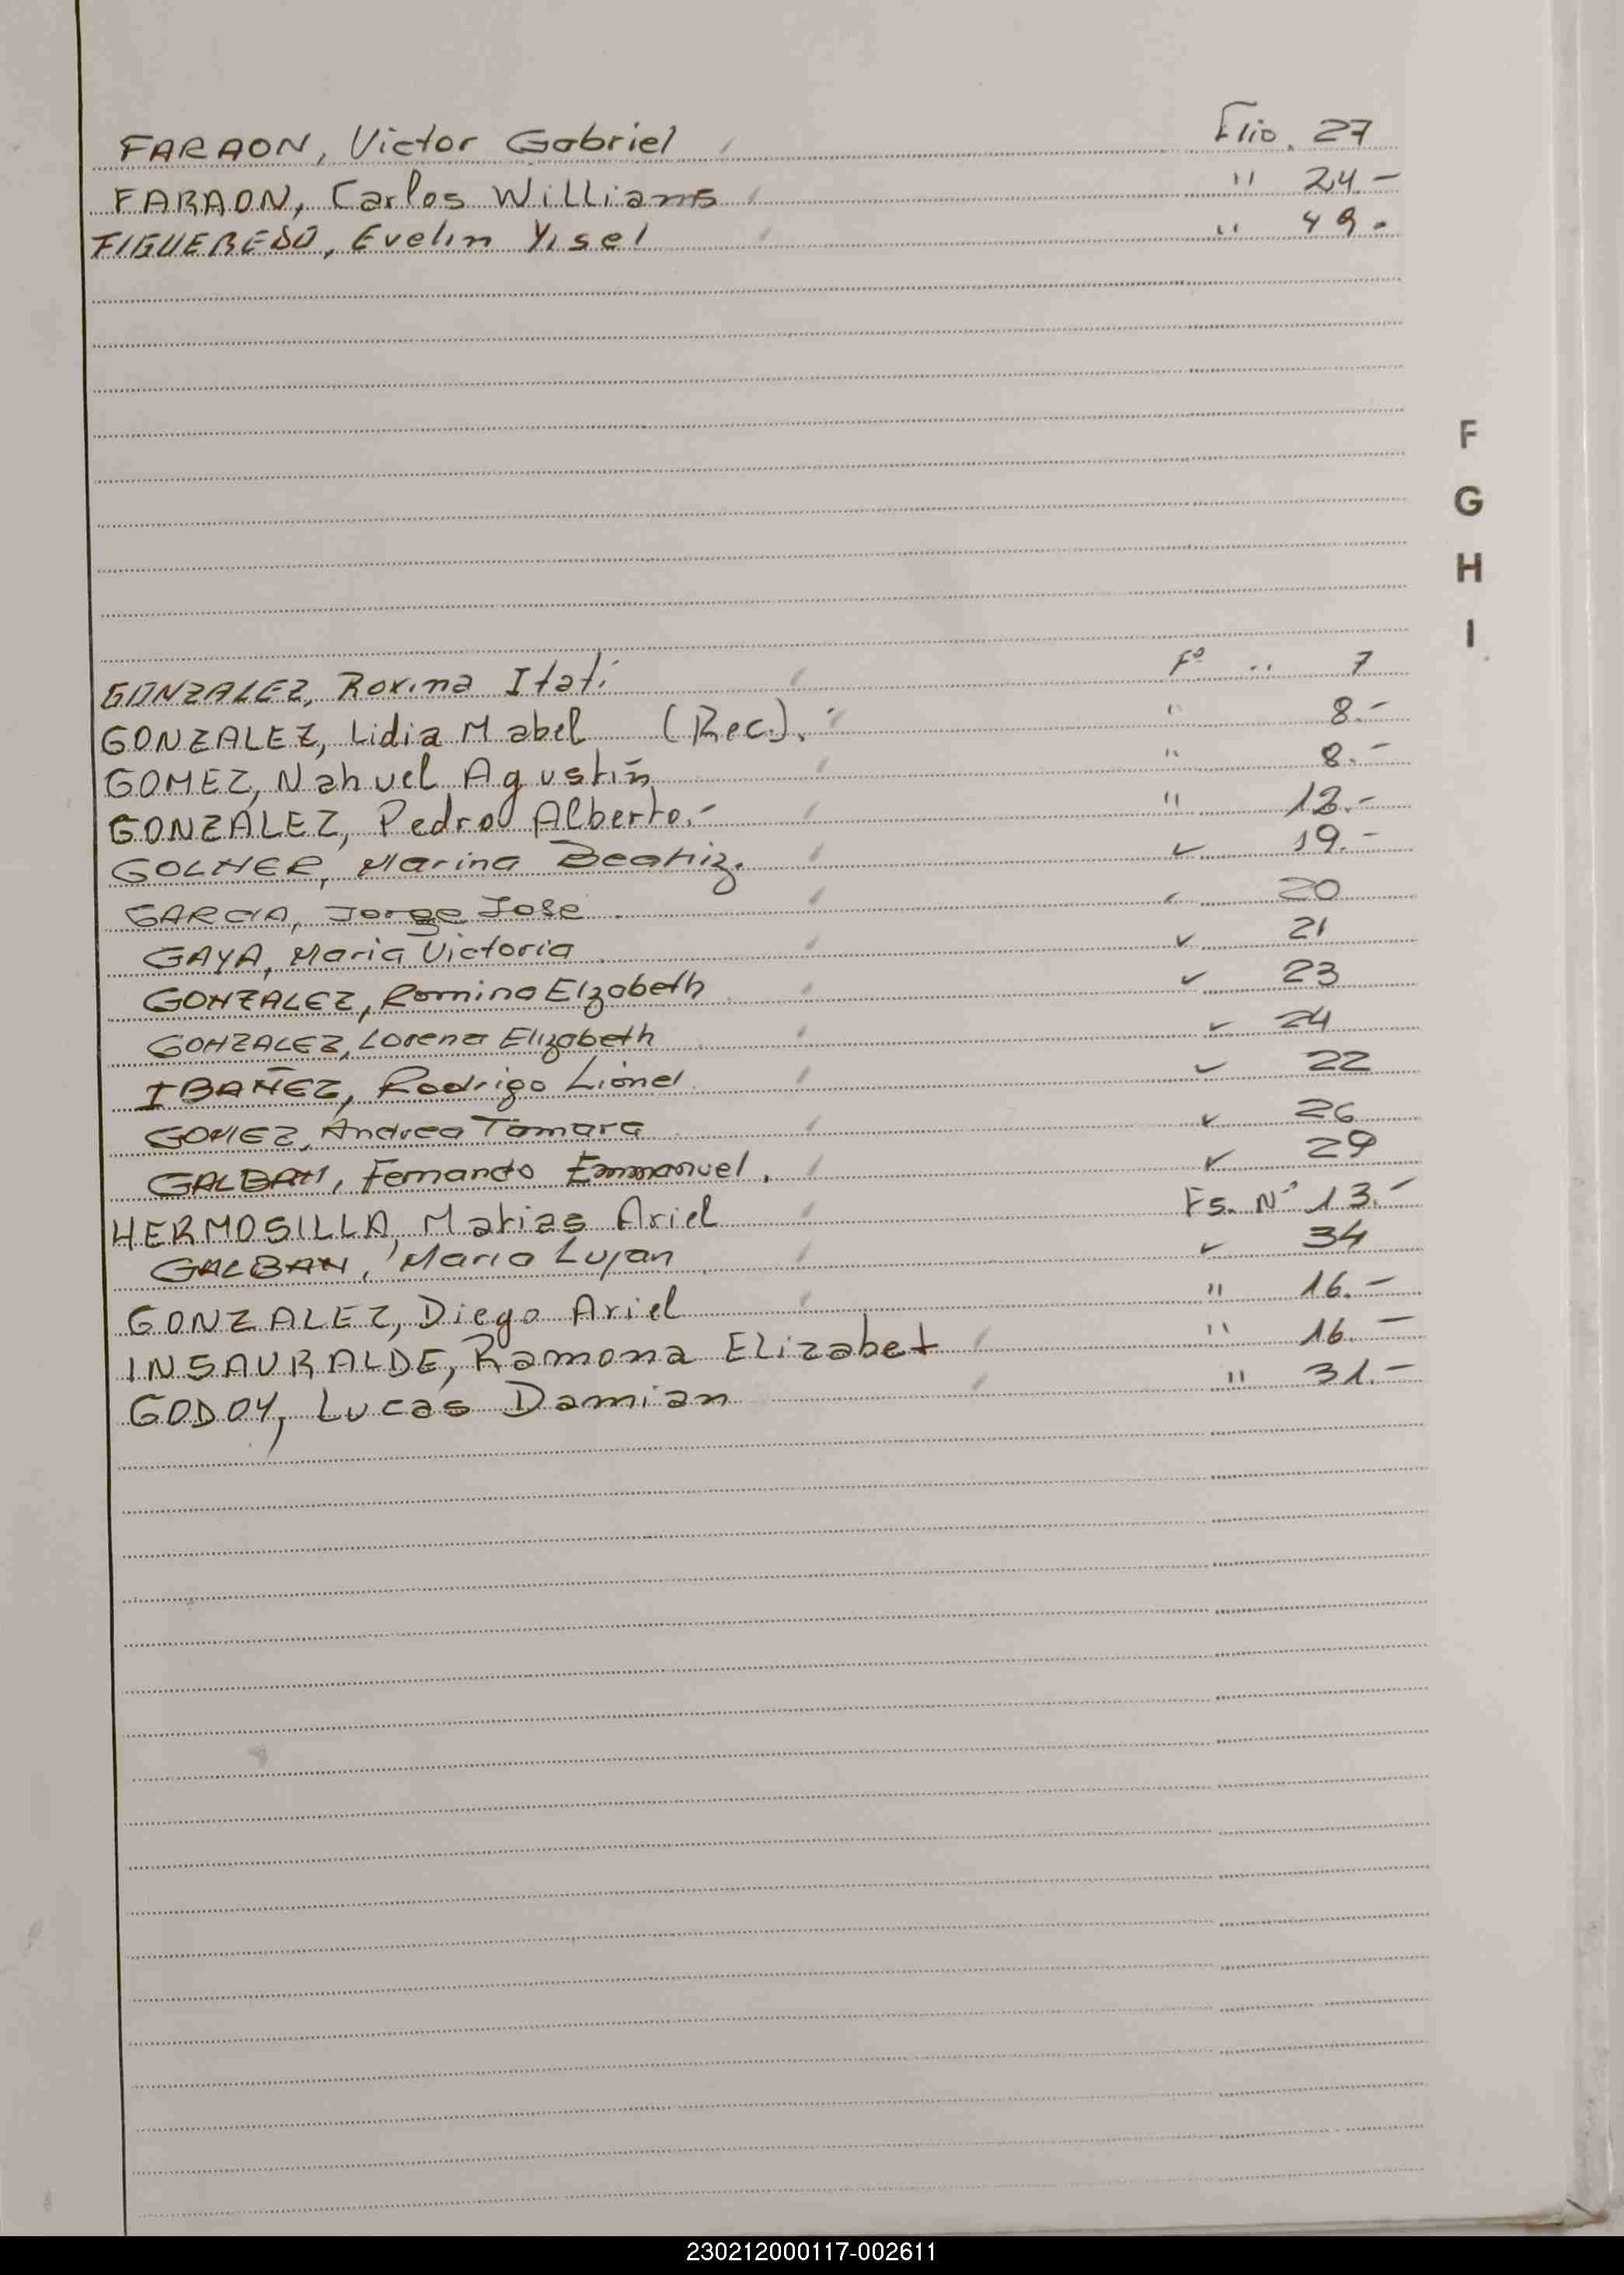 FARAON, Victor Gabriel Flio. 27
FARAON, Carlos Williams " 24.-
FIGUEREDO, Evelin Yisel " 49.
F
G
H
I
GONZALEZ, Roxina Itati Fº " 7
GONZALEZ, Lidia Mabel (Rec.). " 8.-
GOMEZ, Nahuel Agustin " 8.-
GONZALEZ, Pedro Alberto.- " 12.-
GOLNER, Marina Beatriz. " 19.-
GARCIA, Jorge Jose. " 20
GAYA, Maria Victoria. " 21
GONZALEZ, Romina Elzabeth. " 23
GONZALEZ, Lorena Elizabeth. " 24
IBAÑEZ, Rodrigo Lionel. " 22
GOMEZ, Andrea Tamara " 26
GALBAN, Fernando Emmanuel. " 29
HERMOSILLA, Matias Ariel Fs. Nº 13.-
GALBAN, Maria Lujan. " 34
GONZALEZ, Diego Ariel " 16.-
INSAURALDE, Ramona Elizabet " 16.-
GODOY, Lucas Damian " 31.-
230212000117-002611